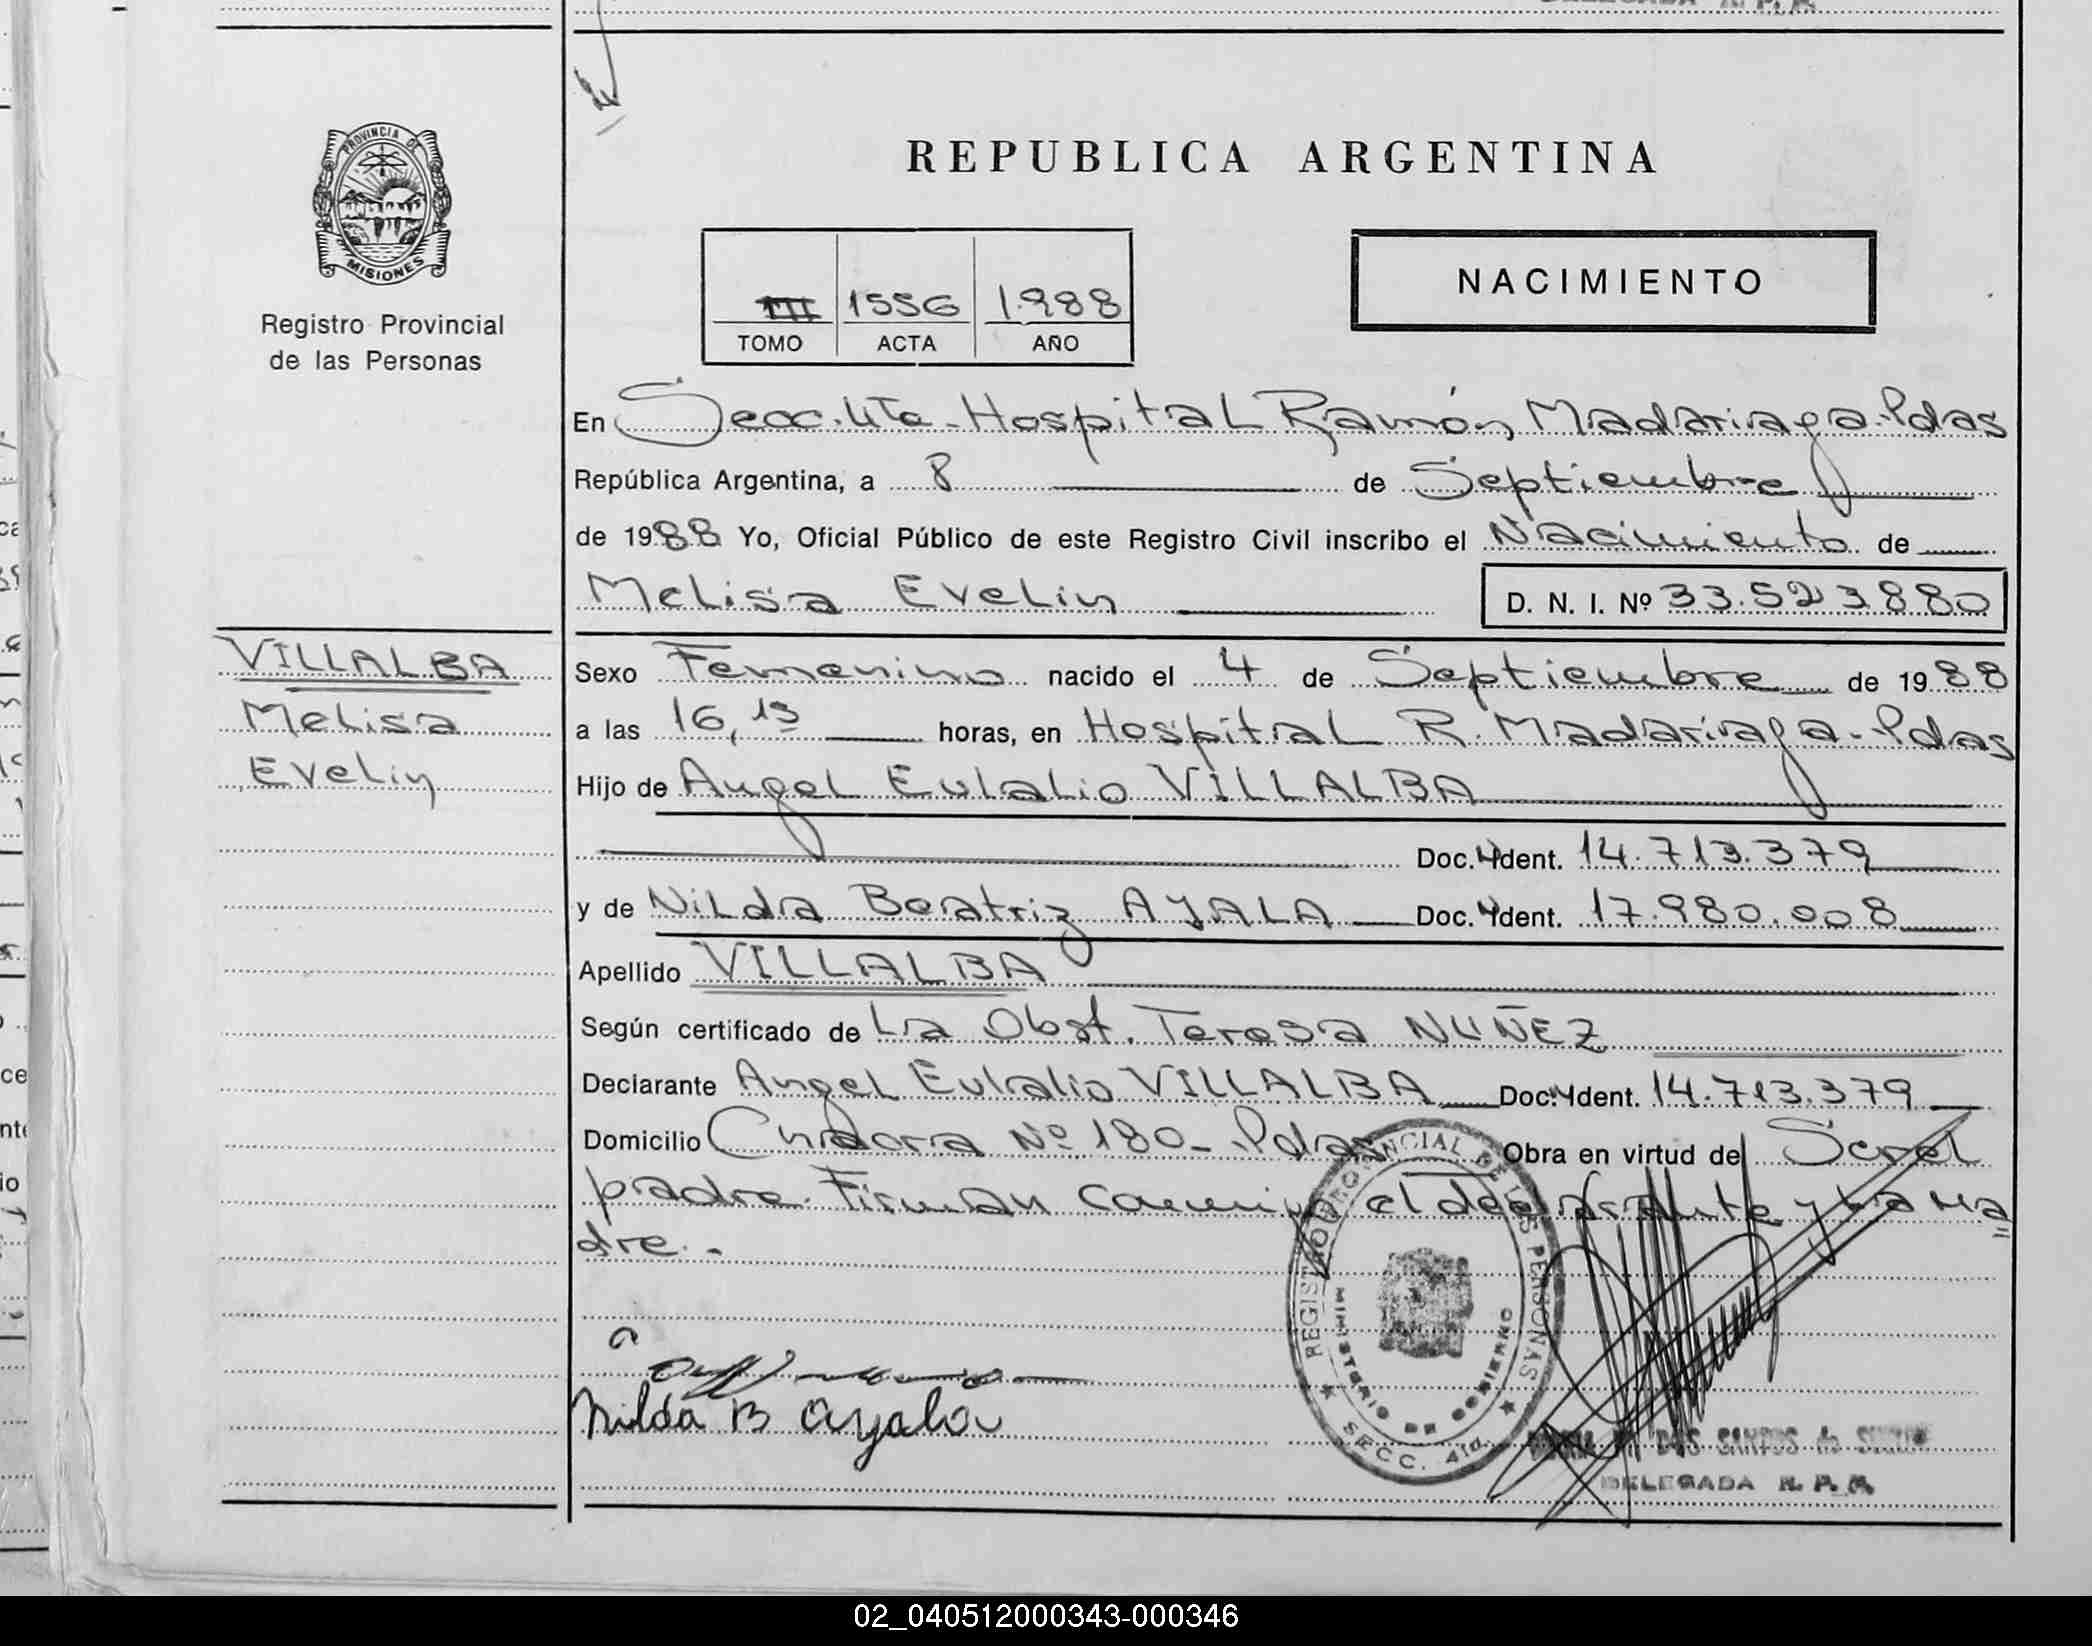 DELEGADA R. P. P.
PROVINCIA DE
MISIONES
Registro Provincial
de las Personas
REPUBLICA ARGENTINA
III 1556 1.988
TOMO ACTA AÑO
NACIMIENTO
En Secc. 4ta - Hospital Ramón Madariaga - Pdas
República Argentina, a 8 de Septiembre
de 1988 Yo, Oficial Público de este Registro Civil inscribo el Nacimiento de
Melisa Evelin D. N. I. Nº 33.523880
VILLALBA
Melisa
Evelin
Sexo Femenino nacido el 4 de Septiembre de 1988
a las 16,15 horas, en Hospital R. Madariaga - Pdas
Hijo de Angel Eulalio VILLALBA
Doc. Ident. 14.713.379
y de Nilda Beatriz AYALA Doc. Ident. 17.980.008
Apellido VILLALBA
Según certificado de La Obst. Teresa NUÑEZ
Declarante Angel Eulalio VILLALBA Doc. Ident. 14.713.379
Domicilio Nº 180 - Pdas Obra en virtud de Ser el
padre. Firman conmigo el declarante y la ma
dre. -
Nilda B Ayala
REGISTRO PROVINCIAL DE LAS PERSONAS
MINISTERIO DE GOBIERNO
SECC. 4ta.
DOS SANTOS de
DELEGADA R. P. P.
02_040512000343-000346